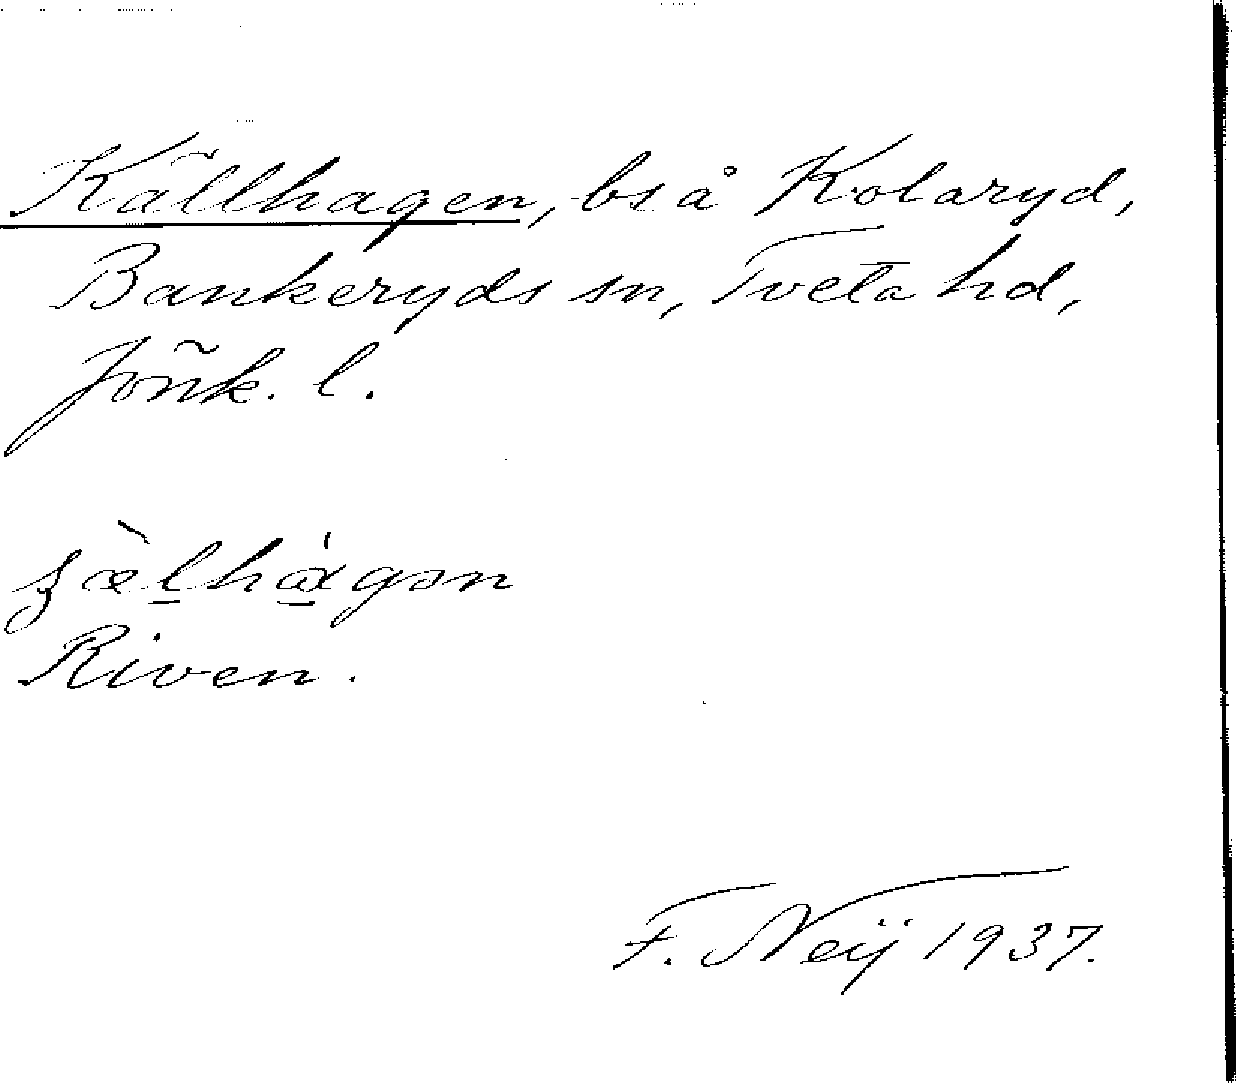 Källhagen, bs å Kolaryd,
Bankeryds sn, Tveta hd,
Jönk. l.
Riven.
F. Neij 1937.